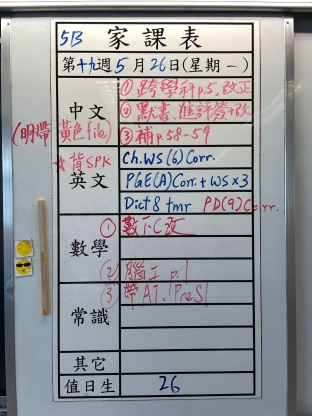 5B 家課表
第十九週5月26日(星期一)
中文
① 跨學科p.5,改正
② 默書、進評簽+改
③ 補p.58-59
(明帶黃色file)
☆背SPK
英文
Ch.WS(6)Corr.
PGE(A)Corr.+WS×3
Dict 8 tmr PD(9)Corr.
數學
① 數下C改
② 腦工 p.1
常識
③ 帶AI.
其它
值日生 26